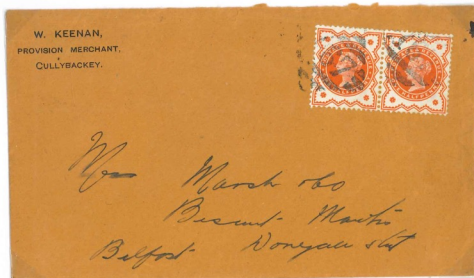 W. KEENAN,
PROVISION MERCHANT,
CULLYBACKEY.
Marsh & Co
Biscuit
Belfast Donegall St